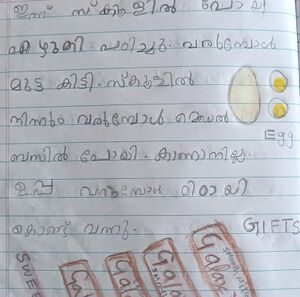 ഇന്ന് സ്കൂളിൽ പോയി
എഴുതി പഠിച്ചു. വരുമ്പോൾ
മുട്ട കിട്ടി. സ്കൂളിൽ
നിന്നും വരുമ്പോൾ
Egg
ബസിൽ പോയി. കാണാനില്ല.
ഉപ്പ വരുമ്പോൾ മിഠായി
കൊണ്ട് വന്നു.
GIFTS
SWEE
Gal
Gala
Gala
Galaxy